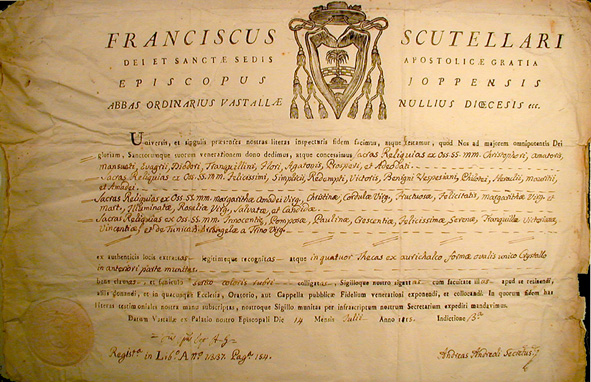 FRANCISCUS SCUTELLARI
DEI ET SANCTÆ SEDIS APOSTOLICÆ GRATIA
EPISCOPUS JOPPENSIS
ABBAS ORDINARIUS VASTALLÆ NULLIUS DIŒCESIS etc.
Universis, et singulis præsentes nostras literas inspecturis fidem facimus, atque testamur, quod Nos ad majorem omnipotentis Dei
gloriam, Sanctorumque suorum venerationem dono dedimus, atque concessimus Sacras Reliquias ex Oss. SS. mm. Christophori, Amatoris,
Mansueti, Evagrii, Diodori, Tranquillini, Flori, Agatonis, Prosperi, et Adeodati.
Sacras Reliquias ex Oss. SS. mm. Felicissimi, Simplicii, Redempti, Victoris, Benigni, Vespesiani,
et Amadei.
Sacras Reliquias ex Oss. SS. mm. Margarithæ, Amadei Virg., Christinæ, Cordulæ Virg., Fructuosæ, Felicitatis, Margarithæ Virg. et
Mart., Illuminatæ, Rosaliæ Virg., Salvatæ, et Candidæ.
Sacras Reliquias ex Oss. SS. mm. Innocentiæ, Pomposæ, Paulinæ, Crescentiæ, Felicissimæ, Serenæ, Tranquillæ, Victorianæ,
Vincentiæ, et De Tunica S. Angelæ a Virg.
ex authenticis locis extractas legitimeque recognitas atque in quatuor Thecas ex aurichalco formæ ovalis unico Crystallo
in anteriori parte munitas
bene clausas, et funiculo serico coloris rubri colligatas, Sigilloque nostro signatas cum facultate illas apud se retinendi,
aliis donandi, et in quacumque Ecclesia, Oratorio, aut Cappella publicæ Fidelium venerationi exponendi, et collocandi. In quorum fidem has
literas testimoniales nostra manu subscriptas, nostroque Sigillo munitas per infrascriptum nostrum Secretarium expediri mandavimus.
Datum Vastallæ ex Palatio nostro Episcopali Die 14 Mensis Julii Anno Indictione
Regist. in Lib. A
Andreas Andreoli Secretus